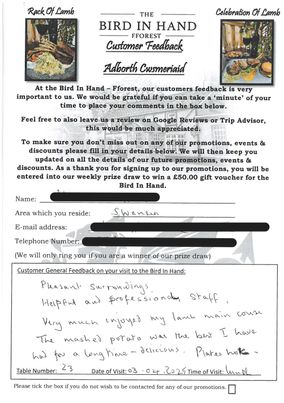 Rack Of Lamb
Celebration Of Lamb
THE
BIRD IN HAND
FFOREST
Customer Feedback
Adborth Cwsmeriaid
At the Bird In Hand – Fforest, our customers feedback is very
important to us. We would be grateful if you can take a ‘minute’ of your
time to place your comments in the box below.
Feel free to also leave us a review on Google Reviews or Trip Advisor,
this would be much appreciated.
To make sure you don't miss out on any of our promotions, events &
discounts please fill in your details below. We will then keep you
updated on all the details of our future promotions, events &
discounts. As a thank you for signing up to our promotions, you will be
entered into our weekly prize draw to win a £50.00 gift voucher for the
Bird In Hand.
Name:
Area which you reside: Swansea
E-mail address:
Telephone Number:
(We will only ring you if you are a winner of our prize draw)
Customer General Feedback on your visit to the Bird In Hand:
Pleasant surroundings.
Helpful and professional staff.
Very much enjoyed my lamb main course
The mashed potato was the best I have
had for a long time - delicious. Plates hot.
Table Number: 23 Date of Visit: 03-04-2025 Time of Visit: lunch
Please tick the box if you do not wish to be contacted for any of our promotions.